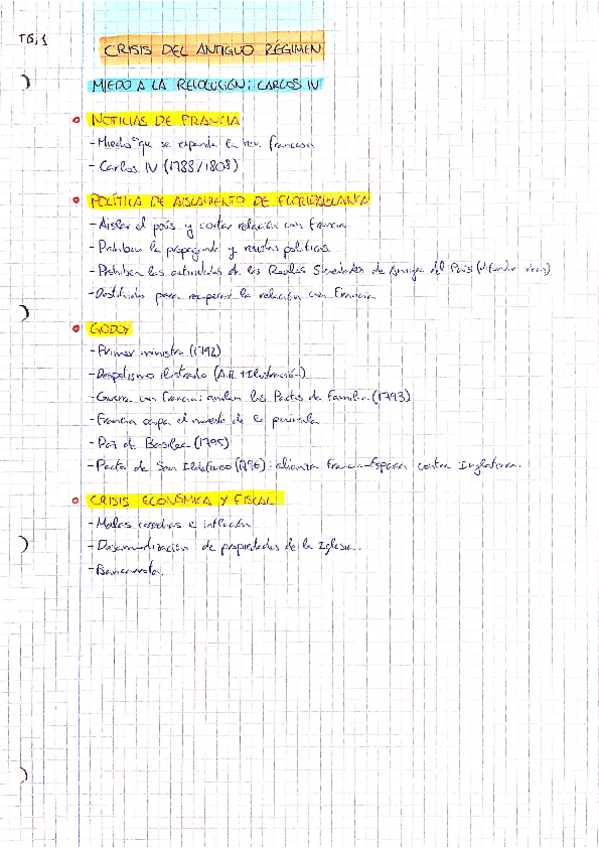 T6.1
CRISIS DEL ANTIGUO RÉGIMEN
MIEDO A LA REVOLUCIÓN: CARLOS IV
NOTICIAS DE FRANCIA
- Miedo a que se expanda la rev. francesa
- Carlos IV (1788/1808)
POLÍTICA DE AISLAMIENTO DE FLORIDABLANCA
- Aislar el país y cortar relación con Francia
- Prohiben la propaganda y revistas políticas
- Prohiben las actividades de las Reales Sociedades de Amigos del País (difunden ideas)
- Destituido para recuperar la relación con Francia
GODOY
- Primer ministro (1792)
- Despotismo ilustrado (A.R + Ilustración)
- Guerra con Francia: anulan los Pactos de Familia (1793)
- Francia ocupa el noreste de la península
- Paz de Basilea (1795)
- Pacto de San Ildefonso (1796): alianza Francia-España contra Inglaterra.
CRISIS ECONÓMICA Y FISCAL
- Malas cosechas e inflación
- Desamortización de propiedades de la Iglesia.
- Bancarrota.